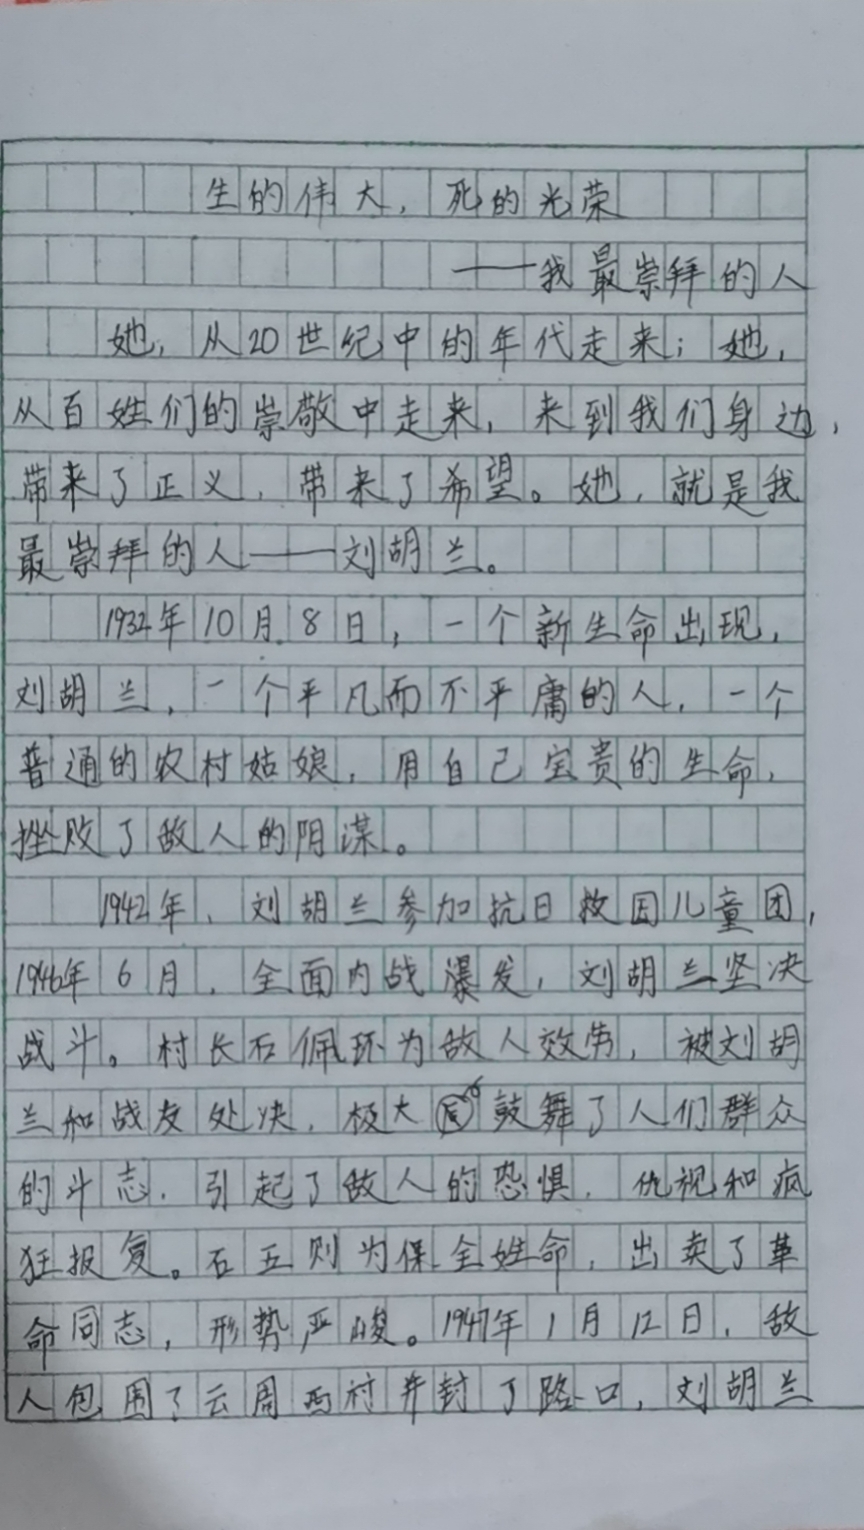 生的伟大，死的光荣
——我最崇拜的人
她，从20世纪中的年代走来；她，
从百姓们的崇敬中走来，来到我们身边，
带来了正义，带来了希望。她，就是我
最崇拜的人——刘胡兰。
1932年10月8日，一个新生命出现，
刘胡兰，一个平凡而不平庸的人，一个
普通的农村姑娘，用自己宝贵的生命，
挫败了敌人的阴谋。
1942年，刘胡兰参加抗日救国儿童团，
1946年6月，全面内战爆发，刘胡兰坚决
战斗。村长石佩环为敌人效劳，被刘胡
兰和战友处决，极大鼓舞了人们群众
的斗志，引起了敌人的恐惧，仇视和疯
狂报复。石五则为保全姓命，出卖了革
命同志，形势严峻。1947年1月12日，敌
人包围了云周西村并封了路口，刘胡兰